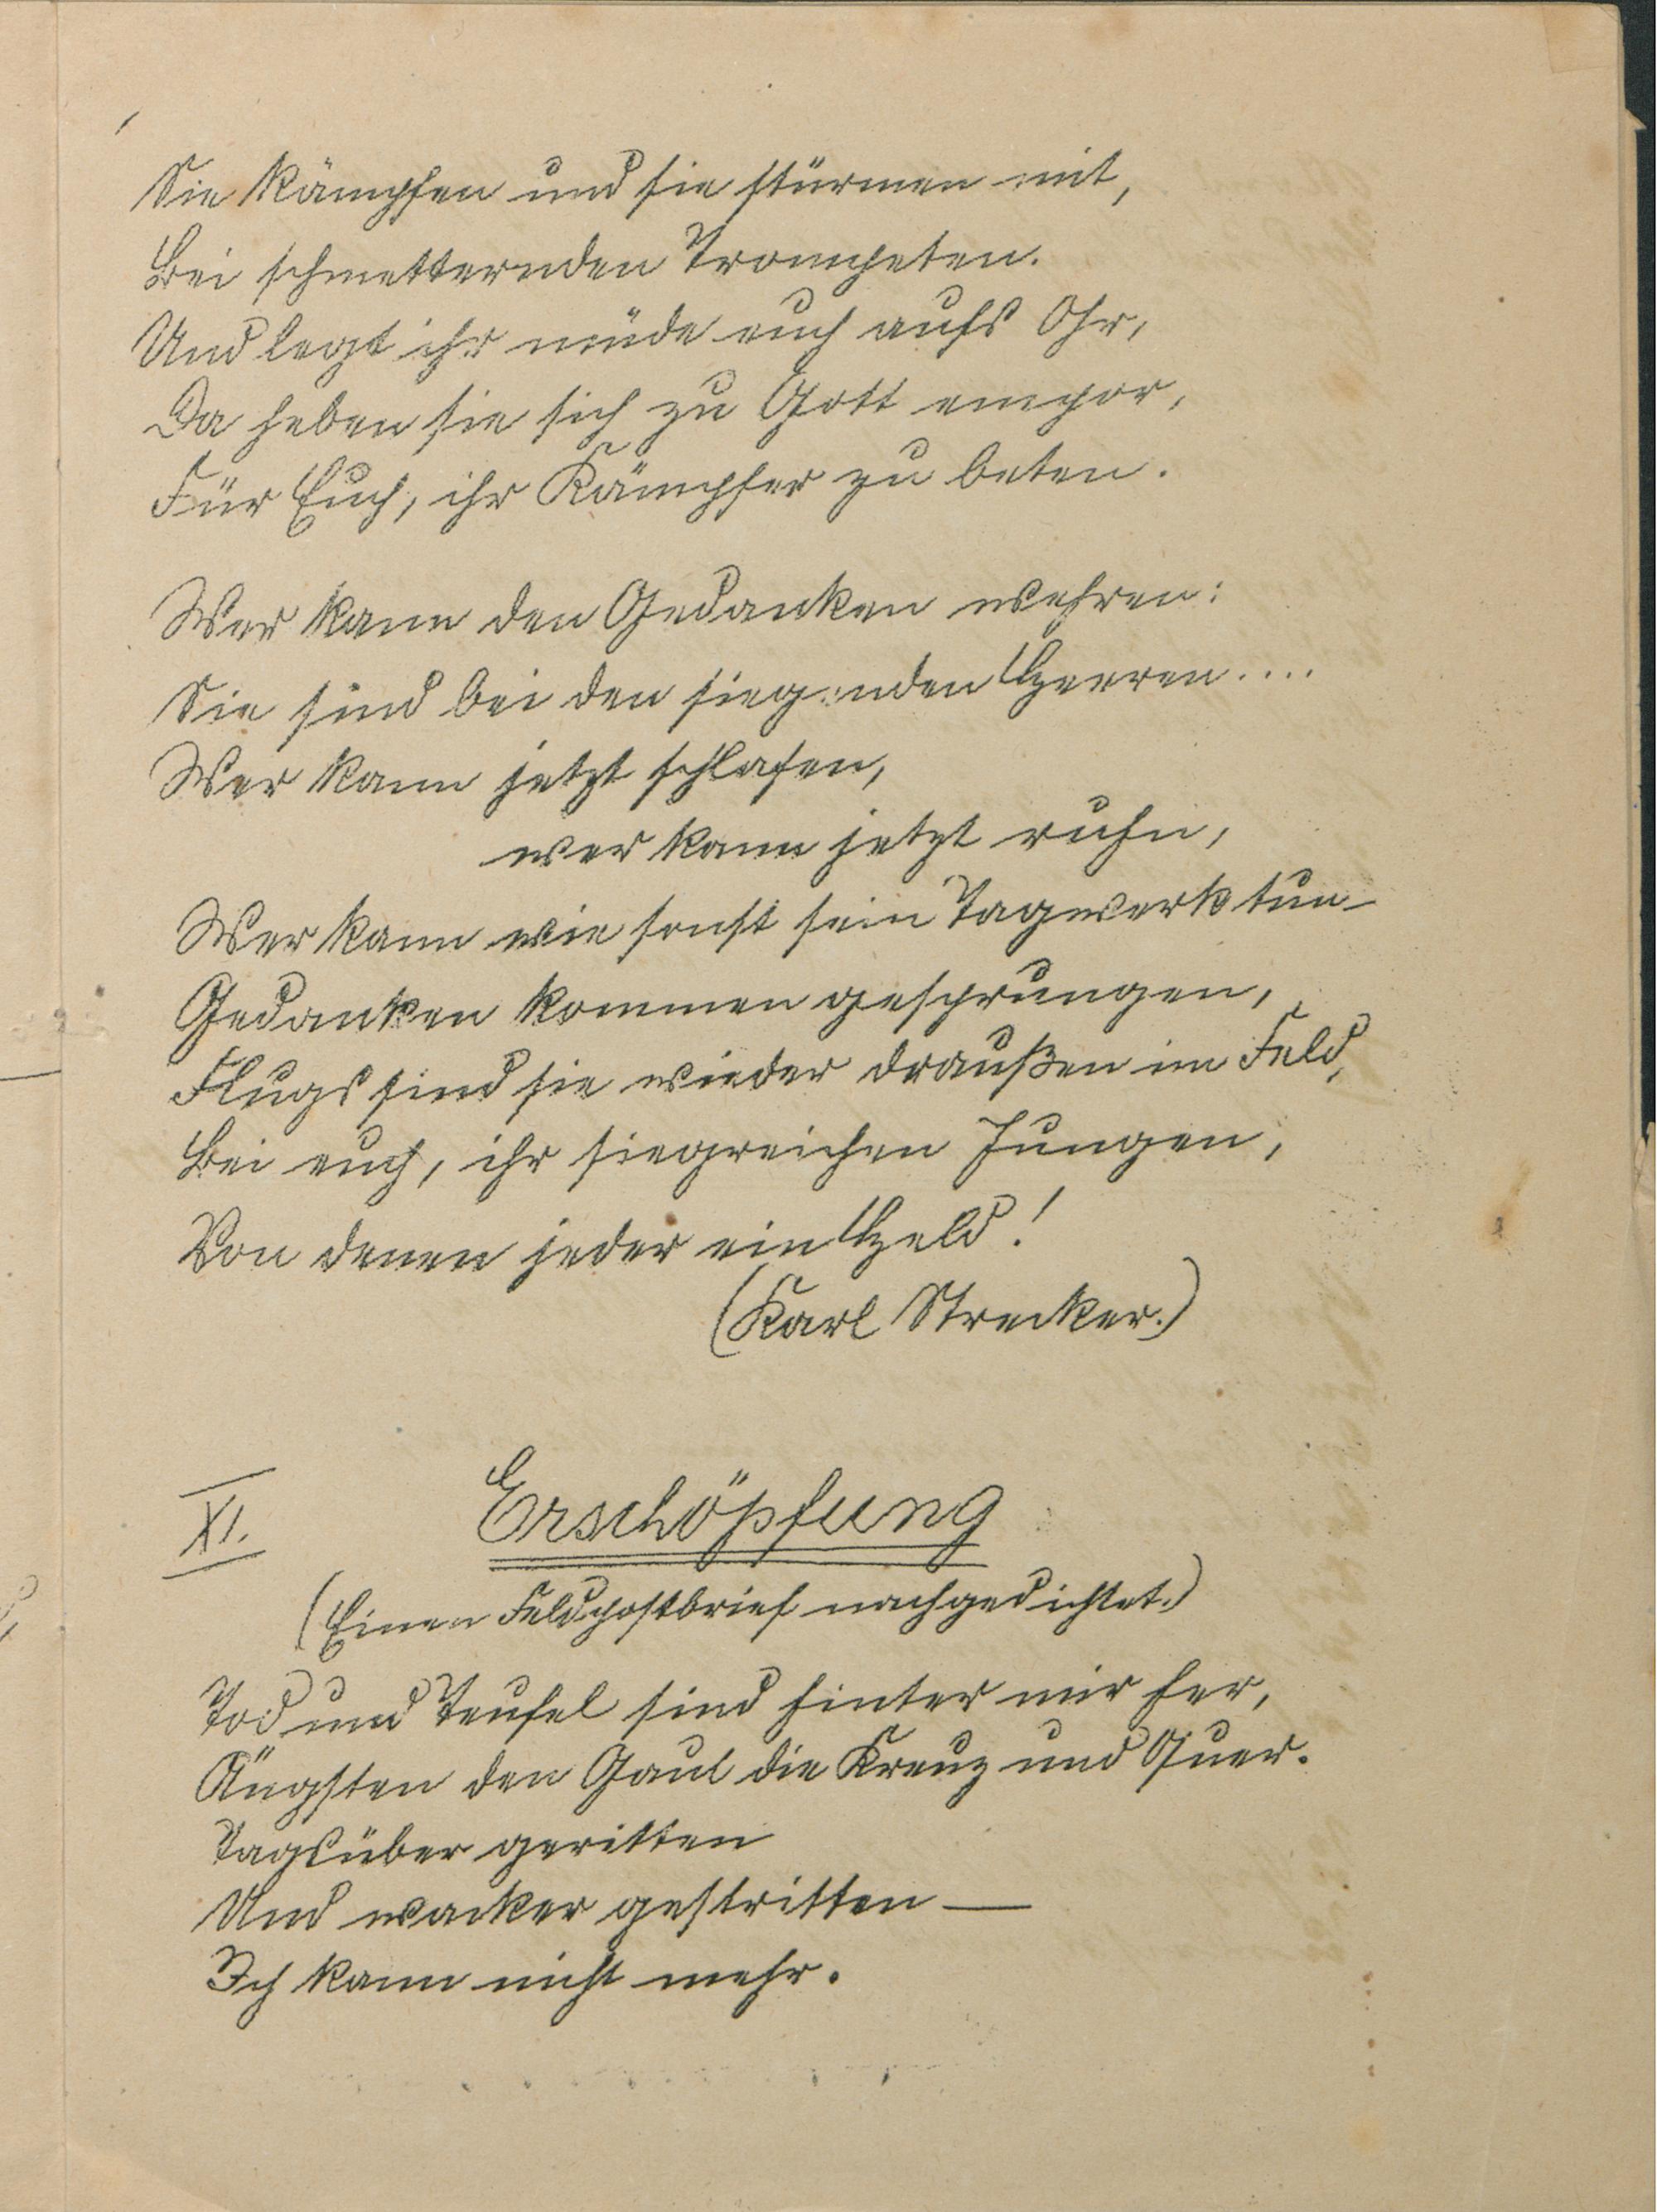 Sie kämpfen und sie stürmen mit,
Bei schmetternden Trompeten.
Und legt ihr müde euch aufs Ohr,
Da heben sie sich zu Gott empor,
Für Euch, ihr Kämpfer zu beten.
Wer kann den Gedanken wehren:
Sie sind bei den siegenden Heeren....
Wer kann jetzt schlafen,
wer kann jetzt ruhn,
Wer kann wie sonst sein Tagwerk tun-
Gedanken kommen gesprungen,
Flugs sind sie wieder draußen im Feld,
Bei euch, ihr siegreichen Jungen,
Von denen jeder ein Held!
(Karl Strecker.)
XI. Erschöpfung
(Einem Feldpostbrief nachgedichtet.)
Tod und Teufel sind hinter mir her,
Ängsten den Gaul die Kreuz und Quer.
Tagsüber geritten
Und wacker gestritten —
Ich kann nicht mehr.